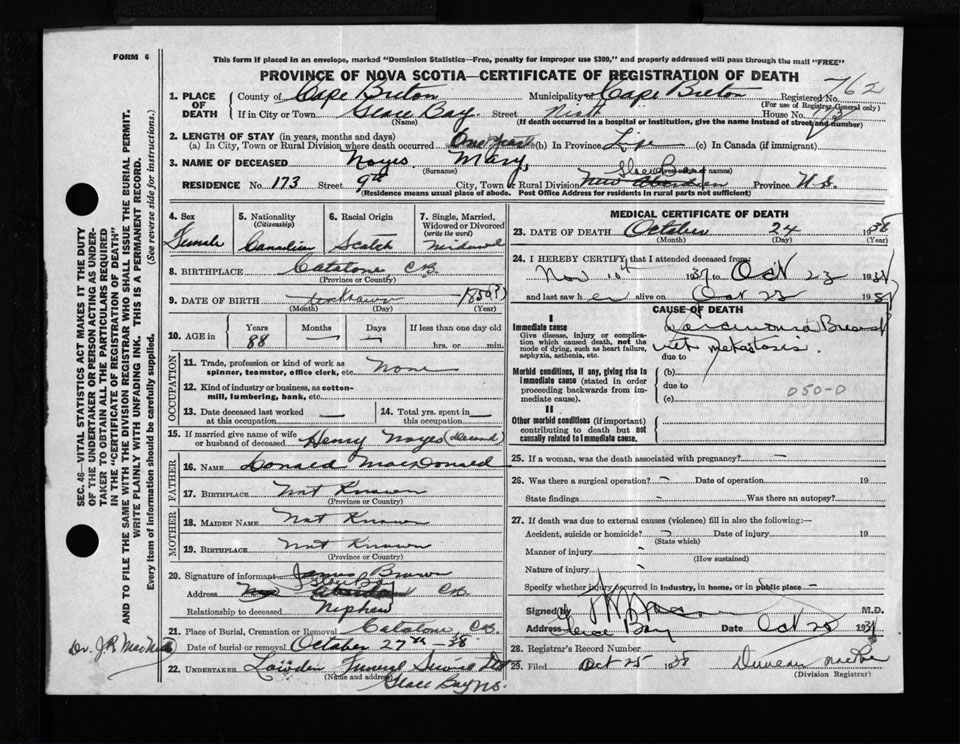 FORM 6
This form if placed in an envelope, marked "Dominion Statistics—Free, penalty for improper use $300," and properly addressed will pass through the mail "FREE"
PROVINCE OF NOVA SCOTIA—CERTIFICATE OF REGISTRATION OF DEATH
762
1. PLACE OF DEATH County of Cape Breton Municipality of Cape Breton Registered No.
(For use of Registrar General only)
If in City or Town Glace Bay Street Ninth House No. 173
(Name) (If death occurred in a hospital or institution, give the name instead of street and number)
2. LENGTH OF STAY (in years, months and days)
(a) In City, Town or Rural Division where death occurred One year (b) In Province Life (c) In Canada (if immigrant)
3. NAME OF DECEASED Noyes Mary
(Surname) names)
RESIDENCE No. 173 Street 9th City, Town or Rural Division Glace Bay New Aberdeen Province N.S.
(Residence means usual place of abode. Post Office Address for residents in rural parts not sufficient)
4. Sex Female
5. Nationality (Citizenship) Canadian
6. Racial Origin Scotch
7. Single, Married, Widowed or Divorced (write the word) Widowed
8. BIRTHPLACE Catalone, C.B.
(Province or Country)
9. DATE OF BIRTH Unknown 1850(?)
(Month) (Day) (Year)
10. AGE in Years 88 Months — Days — If less than one day old
hrs. or min.
OCCUPATION
11. Trade, profession or kind of work as spinner, teamster, office clerk, etc. None
12. Kind of industry or business, as cotton-mill, lumbering, bank, etc.
13. Date deceased last worked at this occupation —
14. Total yrs. spent in this occupation —
15. If married give name of wife or husband of deceased Henry Noyes (Deceased)
FATHER
16. NAME Donald MacDonald
17. BIRTHPLACE Not Known
(Province or Country)
MOTHER
18. MAIDEN NAME Not Known
19. BIRTHPLACE Not Known
(Province or Country)
20. Signature of informant James Brown
Address Glace Bay New Aberdeen C.B.
Relationship to deceased Nephew
21. Place of Burial, Cremation or Removal Catalone C.B.
Date of burial or removal October 27th - 38
22. UNDERTAKER Lowden Funeral Service Ltd
(Name and address)
Glace Bay N.S.
MEDICAL CERTIFICATE OF DEATH
23. DATE OF DEATH October 24 1938
(Month) (Day) (Year)
24. I HEREBY CERTIFY that I attended deceased from
Nov 10th 1937 to Oct 23 1938
and last saw her alive on Oct 23 1938
CAUSE OF DEATH
I
Immediate cause
Give disease, injury or complication which caused death, not the mode of dying, such as heart failure, asphyxia, asthenia, etc.
(a) Carcinoma Breast
with metastasis.
due to
Morbid conditions, if any, giving rise to immediate cause (stated in order proceeding backwards from immediate cause).
(b)
due to
(c)
050-D
II
Other morbid conditions (if important) contributing to death but not causally related to immediate cause.
25. If a woman, was the death associated with pregnancy? —
26. Was there a surgical operation? — Date of operation 19
State findings — Was there an autopsy?
27. If death was due to external causes (violence) fill in also the following:—
Accident, suicide or homicide? Date of injury 19
(State which)
Manner of injury —
(How sustained)
Nature of injury —
Specify whether injury occurred in industry, in home, or in public place —
Signed by M.D.
Address Glace Bay Date Oct 25 1938
28. Registrar's Record Number
29. Filed Oct 25 1938 Duncan
(Division Registrar)
SEC. 46—VITAL STATISTICS ACT MAKES IT THE DUTY
OF THE UNDERTAKER OR PERSON ACTING AS UNDER-
TAKER TO OBTAIN ALL THE PARTICULARS REQUIRED
IN THE "CERTIFICATE OF REGISTRATION OF DEATH"
AND TO FILE THE SAME WITH THE DIVISION REGISTRAR WHO SHALL ISSUE THE BURIAL PERMIT.
WRITE PLAINLY WITH UNFADING INK. THIS IS A PERMANENT RECORD.
Every item of information should be carefully supplied. (See reverse side for instructions.)
Dr. J.R.